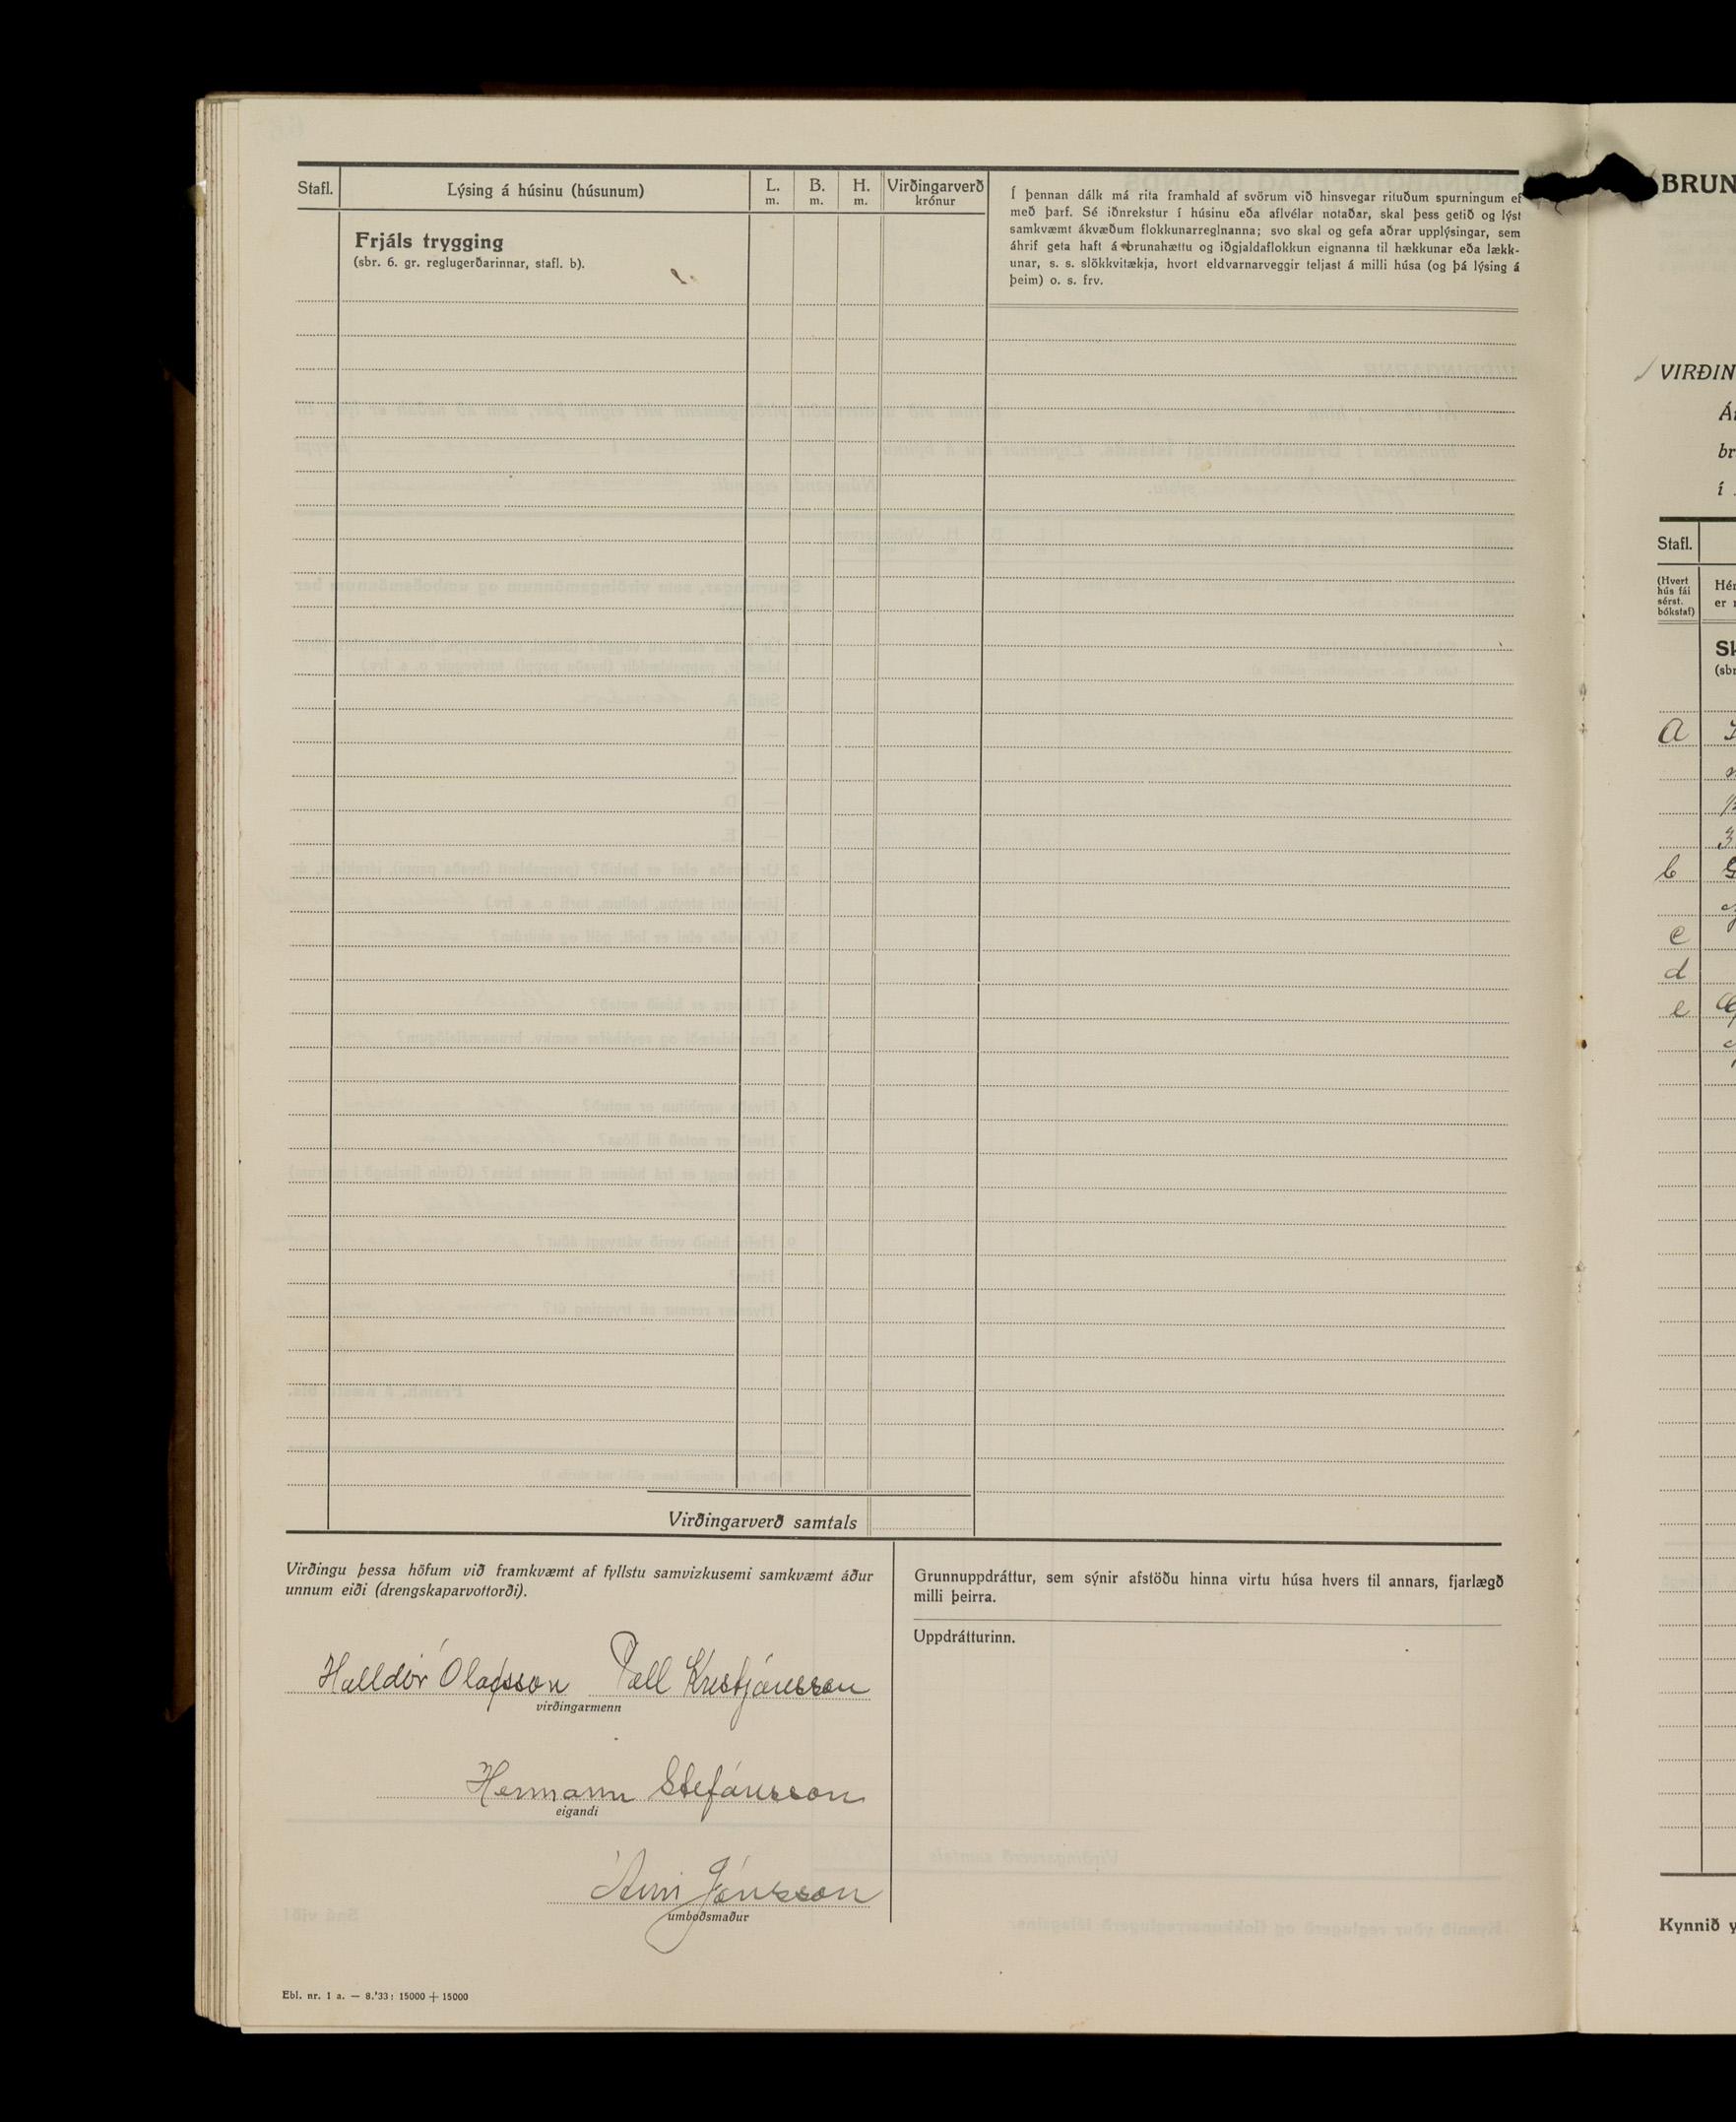 Stafl.
Lýsing á húsinu (húsunum)
L.
m.
B.
m.
H.
m.
Virðingarverð
krónur
Frjáls trygging
(sbr. 6. gr. reglugerðarinnar, stafl. b).
Í þennan dálk má rita framhald af svörum við hinsvegar rituðum spurningum ef
með þarf. Sé iðnrekstur í húsinu eða aflvélar notaðar, skal þess getið og lýst
samkvæmt ákvæðum flokkunarreglnanna; svo skal og gefa aðrar upplýsingar, sem
áhrif geta haft á brunahættu og iðgjaldaflokkun eignanna til hækkunar eða lækk-
unar, s. s. slökkvitækja, hvort eldvarnarveggir teljast á milli húsa (og þá lýsing á
þeim) o. s. frv.
Virðingarverð samtals
Virðingu þessa höfum við framkvæmt af fyllstu samvizkusemi samkvæmt áður
unnum eiði (drengskaparvottorði).
Halldór Ólafsson Páll Kristjánsson
virðingarmenn
Hermann Stefánsson
eigandi
Árni Jónsson
umboðsmaður
Grunnuppdráttur, sem sýnir afstöðu hinna virtu húsa hvers til annars, fjarlægð
milli þeirra.
Uppdrátturinn.
Ebl. nr. 1 a. — 8.'33: 15000 + 15000
BRUN
VIRÐIN
br
í
Stafl.
(Hvert
hús fái
sérst.
bókstaf)
Hér
er
Sk
(sbr
a
b
c
d
e
Kynnið y